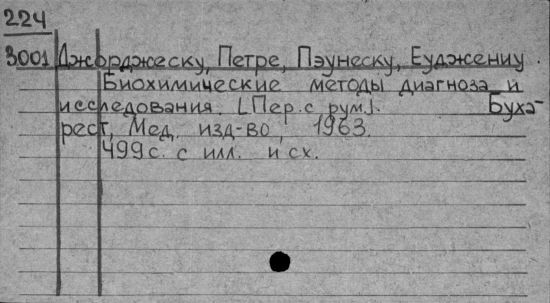 224
3001 Джорджеску, Петре, Пэунеску, Еуджениу.
Биохимические методы диагноза и
исследования. [Пер. с рум.]. Буха-
рест, Мед. изд-во, 1963.
499 с. с илл. и сх.